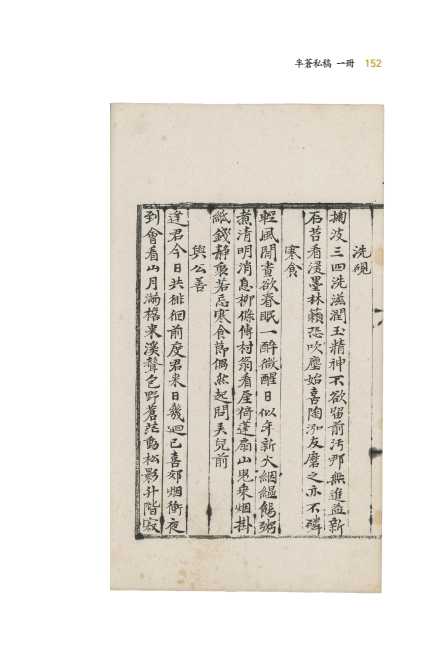 半蒼私稿 一冊 152
洗硯
掬波三四洗滋潤玉精神不欲留前汚那無進益新
石苔看漫墨林籟恐吹塵始喜陶泓友磨之亦不磷
寒食
輕風閒賣欲春眠一醉微醒日似年新火絪縕餳粥
煮清明消息柳條傳村翁看屋倚蓬扇山鬼乘烟掛
紙錢靜裏若忘寒食節偶然起問美兒前
與公善
逢君今日共徘徊前度君來日幾迴已喜郊烟衝夜
到會看山月滿檐來溪聲色野蒼茫動松影升階寂